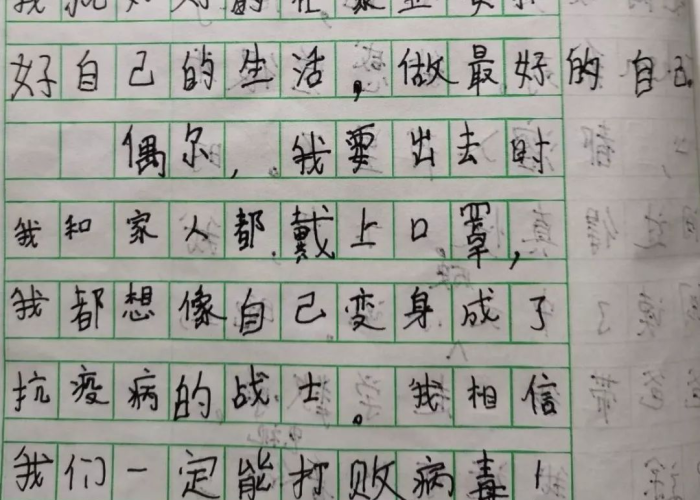 好自己的生活，做最好的自己
偶尔，我要出去时
我和家人都戴上口罩，
我都想像自己变身成了
抗疫病的战士。我相信
我们一定能打败病毒！